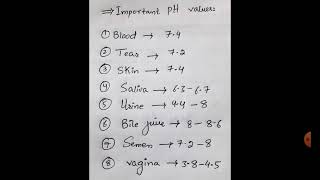 ⇒ Important pH values:
① Blood → 7.4
② Tears → 7.2
③ Skin → 7.4
④ Saliva → 6.3 - 6.7
⑤ Urine → 4.4 - 8
⑥ Bile juice → 8 - 8.6
⑦ Semen → 7.2 - 8
⑧ vagina → 3.8 - 4.5